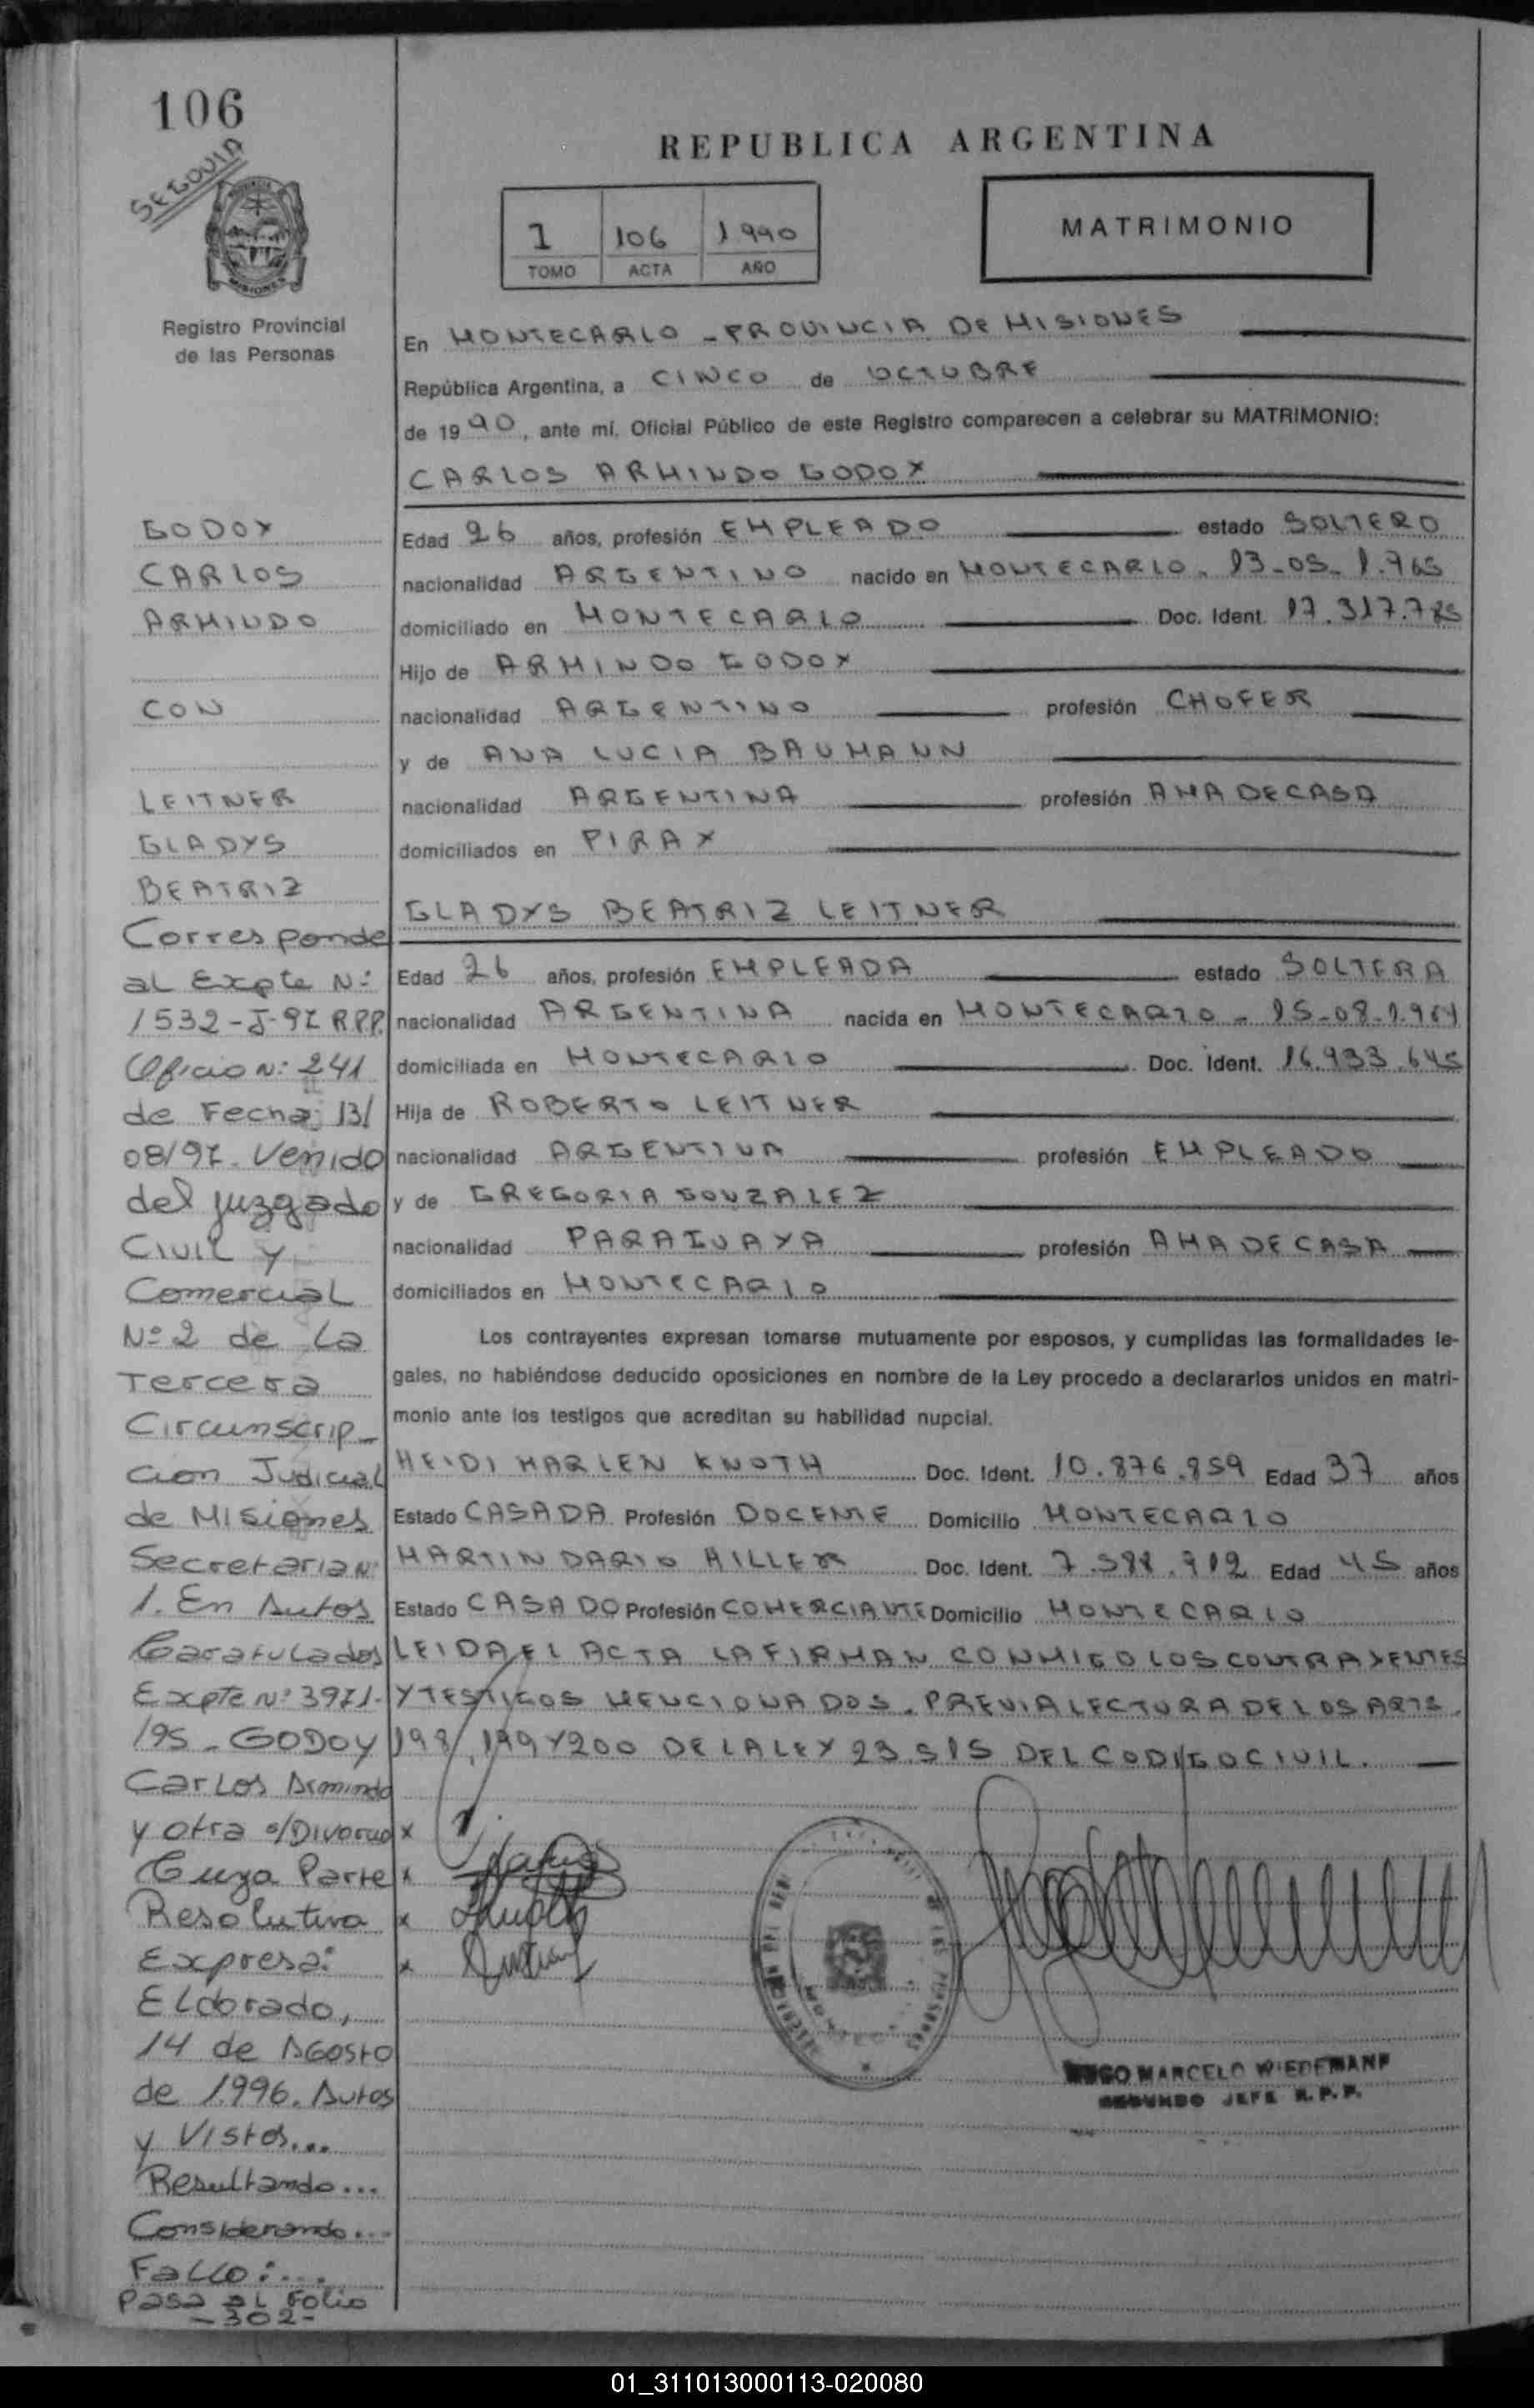 106
SEGOVIA
MISIONES
Registro Provincial
de las Personas
REPUBLICA ARGENTINA
1 106 1.990
TOMO ACTA AÑO
MATRIMONIO
En MONTECARLO - PROVINCIA DE MISIONES
República Argentina, a CINCO de OCTUBRE
de 1990, ante mí, Oficial Público de este Registro comparecen a celebrar su MATRIMONIO:
CARLOS ARMINDO GODOY
Edad 26 años, profesión EMPLEADO estado SOLTERO
nacionalidad ARGENTINO nacido en MONTECARLO
domiciliado en MONTECARLO Doc. Ident.
Hijo de ARMINDO GODOY
nacionalidad ARGENTINO profesión CHOFER
y de ANA LUCIA BAUMANN
nacionalidad ARGENTINA profesión AMA DE CASA
domiciliados en PIRAY
GLADYS BEATRIZ LEITNER
Edad 26 años, profesión EMPLEADA estado SOLTERA
nacionalidad ARGENTINA nacida en MONTECARLO - 15-08-1.964
domiciliada en MONTECARLO Doc. Ident. 16.933.645
Hija de ROBERTO LEITNER
nacionalidad ARGENTINA profesión EMPLEADO
y de GREGORIA GONZALEZ
nacionalidad PARAGUAYA profesión AMA DE CASA
domiciliados en MONTECARLO
Los contrayentes expresan tomarse mutuamente por esposos, y cumplidas las formalidades le-
gales, no habiéndose deducido oposiciones en nombre de la Ley procedo a declararlos unidos en matri-
monio ante los testigos que acreditan su habilidad nupcial.
HEIDI MARLEN KNOTH Doc. Ident. 10.876.859 Edad 37 años
Estado CASADA Profesión DOCENTE Domicilio MONTECARLO
MARTIN DARIO MILLER Doc. Ident. Edad 45 años
Estado CASADO Profesión COMERCIANTE Domicilio MONTECARLO
LEIDA EL ACTA LA FIRMAN CONMIGO LOS CONTRAYENTES
Y TESTIGOS MENCIONADOS. PREVIA LECTURA DE LOS ARTS.
198, 199 Y 200 DE LA LEY 23.515 DEL CODIGO CIVIL.
HUGO MARCELO WIEDEMANN
SEGUNDO JEFE R.P.P.
GODOY
CARLOS
ARMINDO
CON
LEITNER
GLADYS
BEATRIZ
Corresponde
al Expte Nº
1532-J-97 R.P.P.
Oficio Nº: 241
de Fecha 13/
08/97. Venido
del juzgado
Civil y
Comercial
Nº 2 de La
Tercera
Circunscrip-
cion Judicial
de Misiones
Secretaria Nº
1. En Autos
Caratulados
Expte Nº 3971-
195 - GODOY
Carlos Armindo
y otra s/Divorcio
Cuya Parte
Resolutiva
Expresa:
Eldorado,
14 de Agosto
de 1996. Autos
y Vistos...
Resultando...
Considerando...
Fallo:...
Pasa al Folio
-302-
01_311013000113-020080